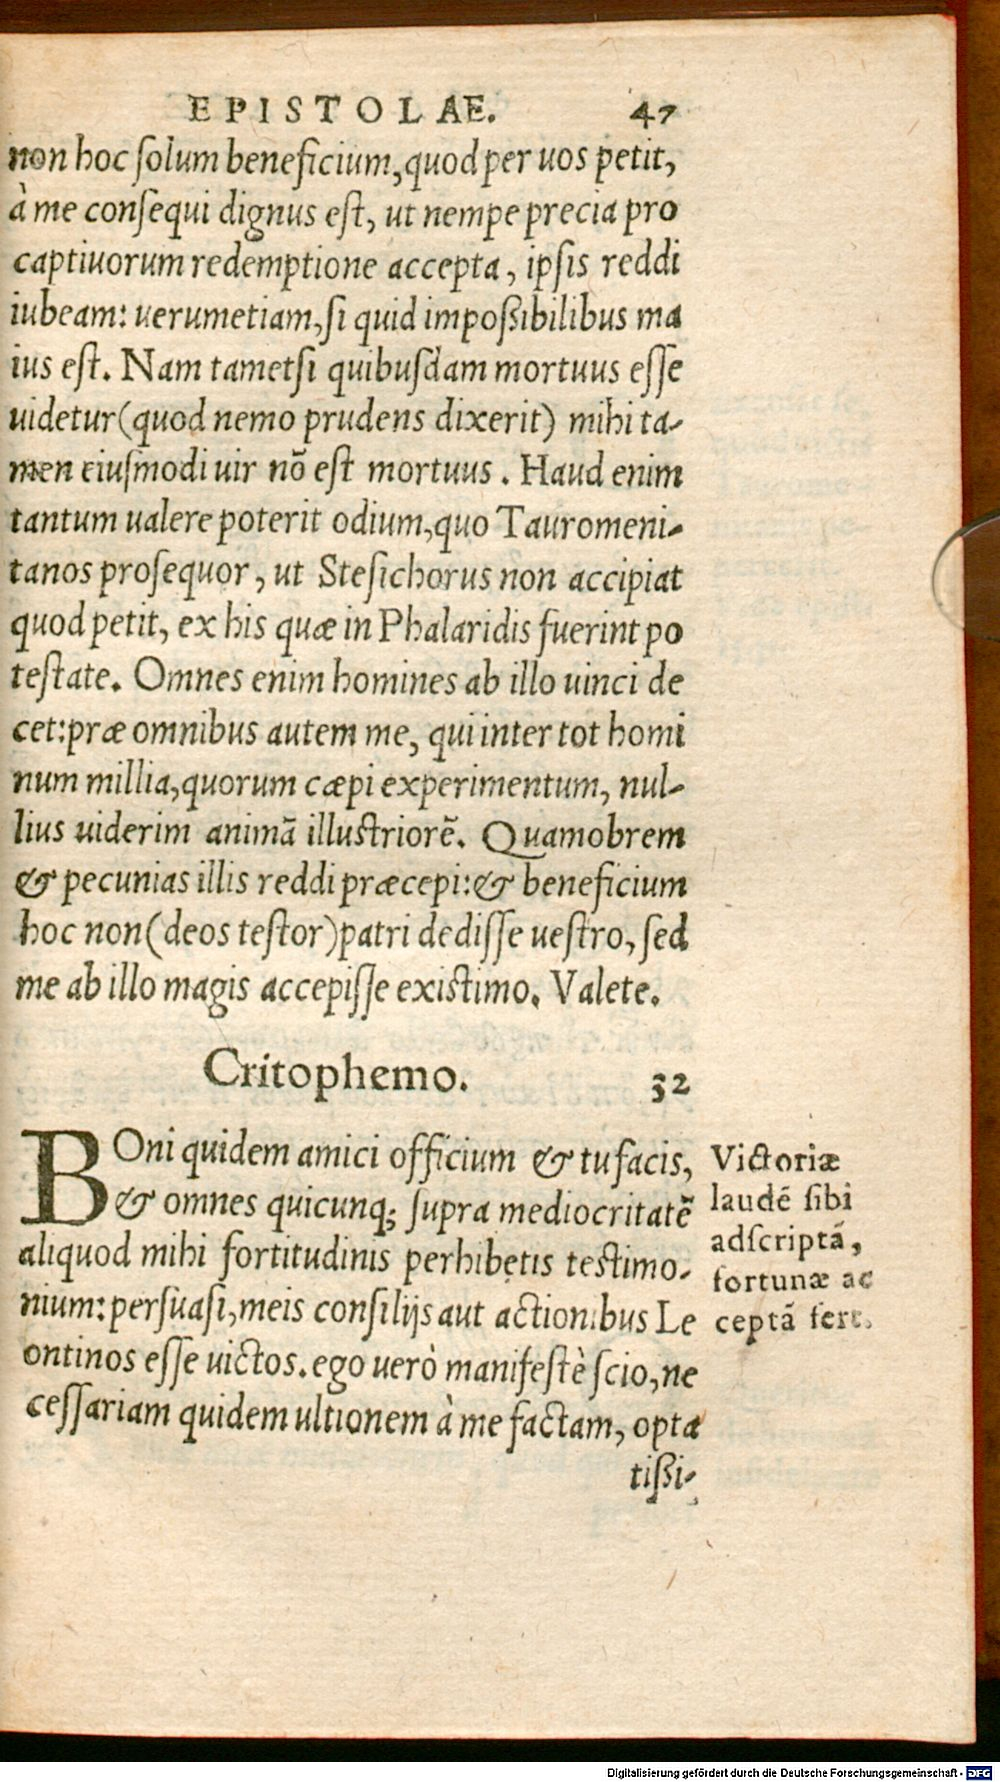 EPISTOLAE. 47
non hoc ſolum beneficium, quod per uos petit,
à me conſequi dignus eſt, ut nempe precia pro
captiuorum redemptione accepta, ipſis reddi
iubeam: uerumetiam, ſi quid impoßibilibus ma
ius eſt. Nam tametſi quibuſdam mortuus eſſe
uidetur (quod nemo prudens dixerit) mihi ta-
men eiuſmodi uir nō eſt mortuus. Haud enim
tantum ualere poterit odium, quo Tauromeni-
tanos proſequor, ut Steſichorus non accipiat
quod petit, ex his quæ in Phalaridis fuerint po
teſtate. Omnes enim homines ab illo uinci de
cet: præ omnibus autem me, qui inter tot homi
num millia, quorum cæpi experimentum, nul-
lius uiderim animā illuſtriorē. Quamobrem
& pecunias illis reddi præcepi: & beneficium
hoc non (deos teſtor) patri dediſſe ueſtro, ſed
me ab illo magis accepiſſe exiſtimo. Valete.
Critophemo. 32
BOni quidem amici officium & tu facis,
& omnes quicunq; ſupra mediocritatē
aliquod mihi fortitudinis perhibetis teſtimo-
nium: perſuaſi, meis conſilijs aut actionibus Le
ontinos eſſe uictos. ego uerò manifeſtè ſcio, ne
ceſſariam quidem ultionem à me factam, opta
tißi-
Victoriæ
laudē ſibi
adſcriptā,
fortunæ ac
ceptā fert.
Digitalisierung gefördert durch die Deutsche Forschungsgemeinschaft - DFG